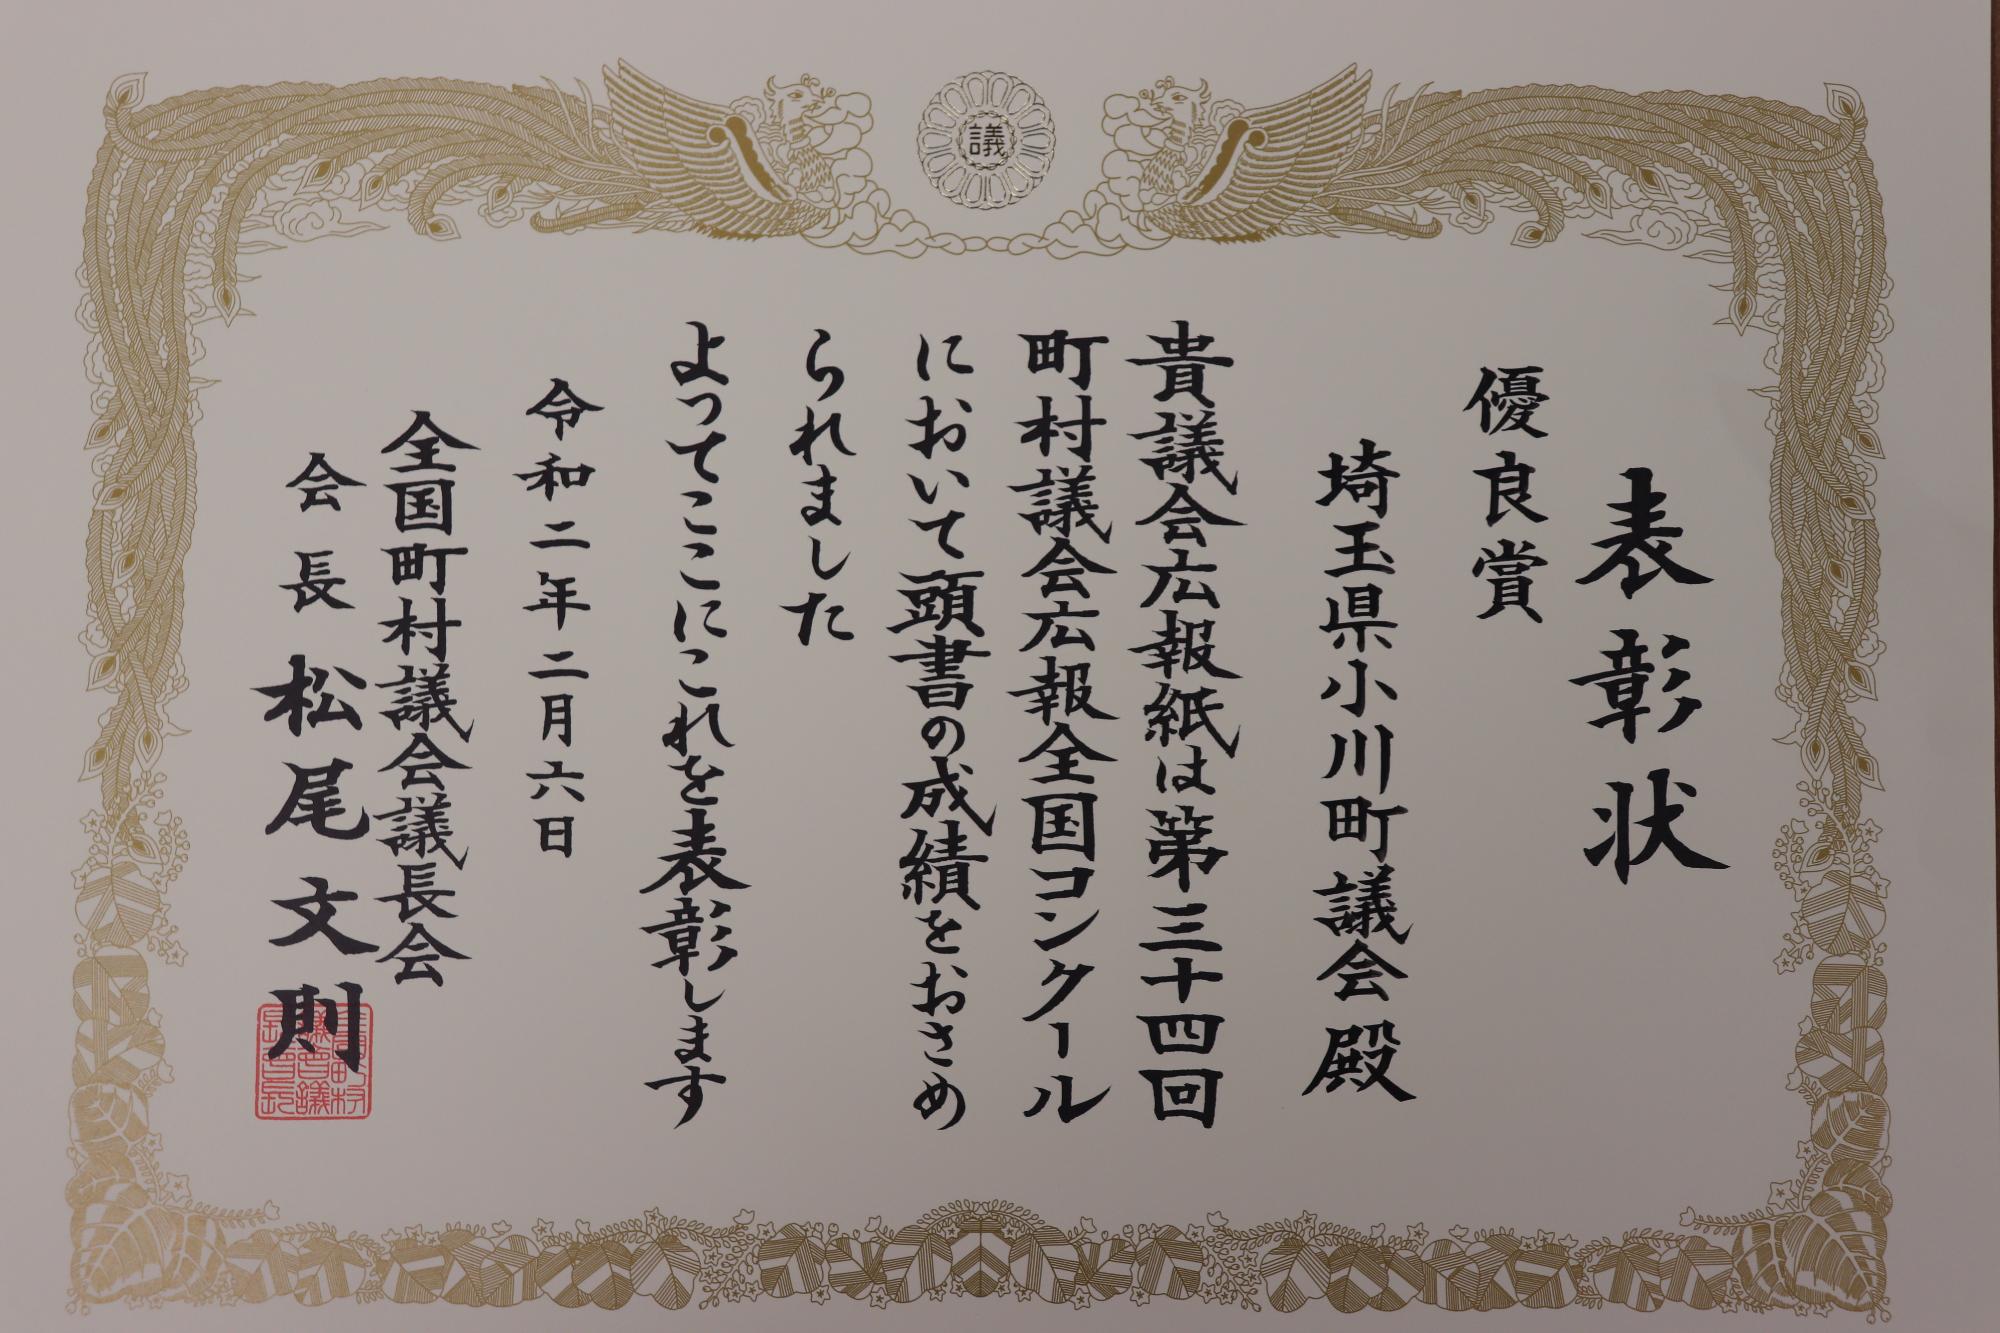 議
表彰状
優良賞
埼玉県小川町議会殿
貴議会広報紙は第三十四回
町村議会広報全国コンクール
において頭書の成績をおさめ
られました
よってここにこれを表彰します
令和二年二月六日
全国町村議会議長会
会長 松尾文則